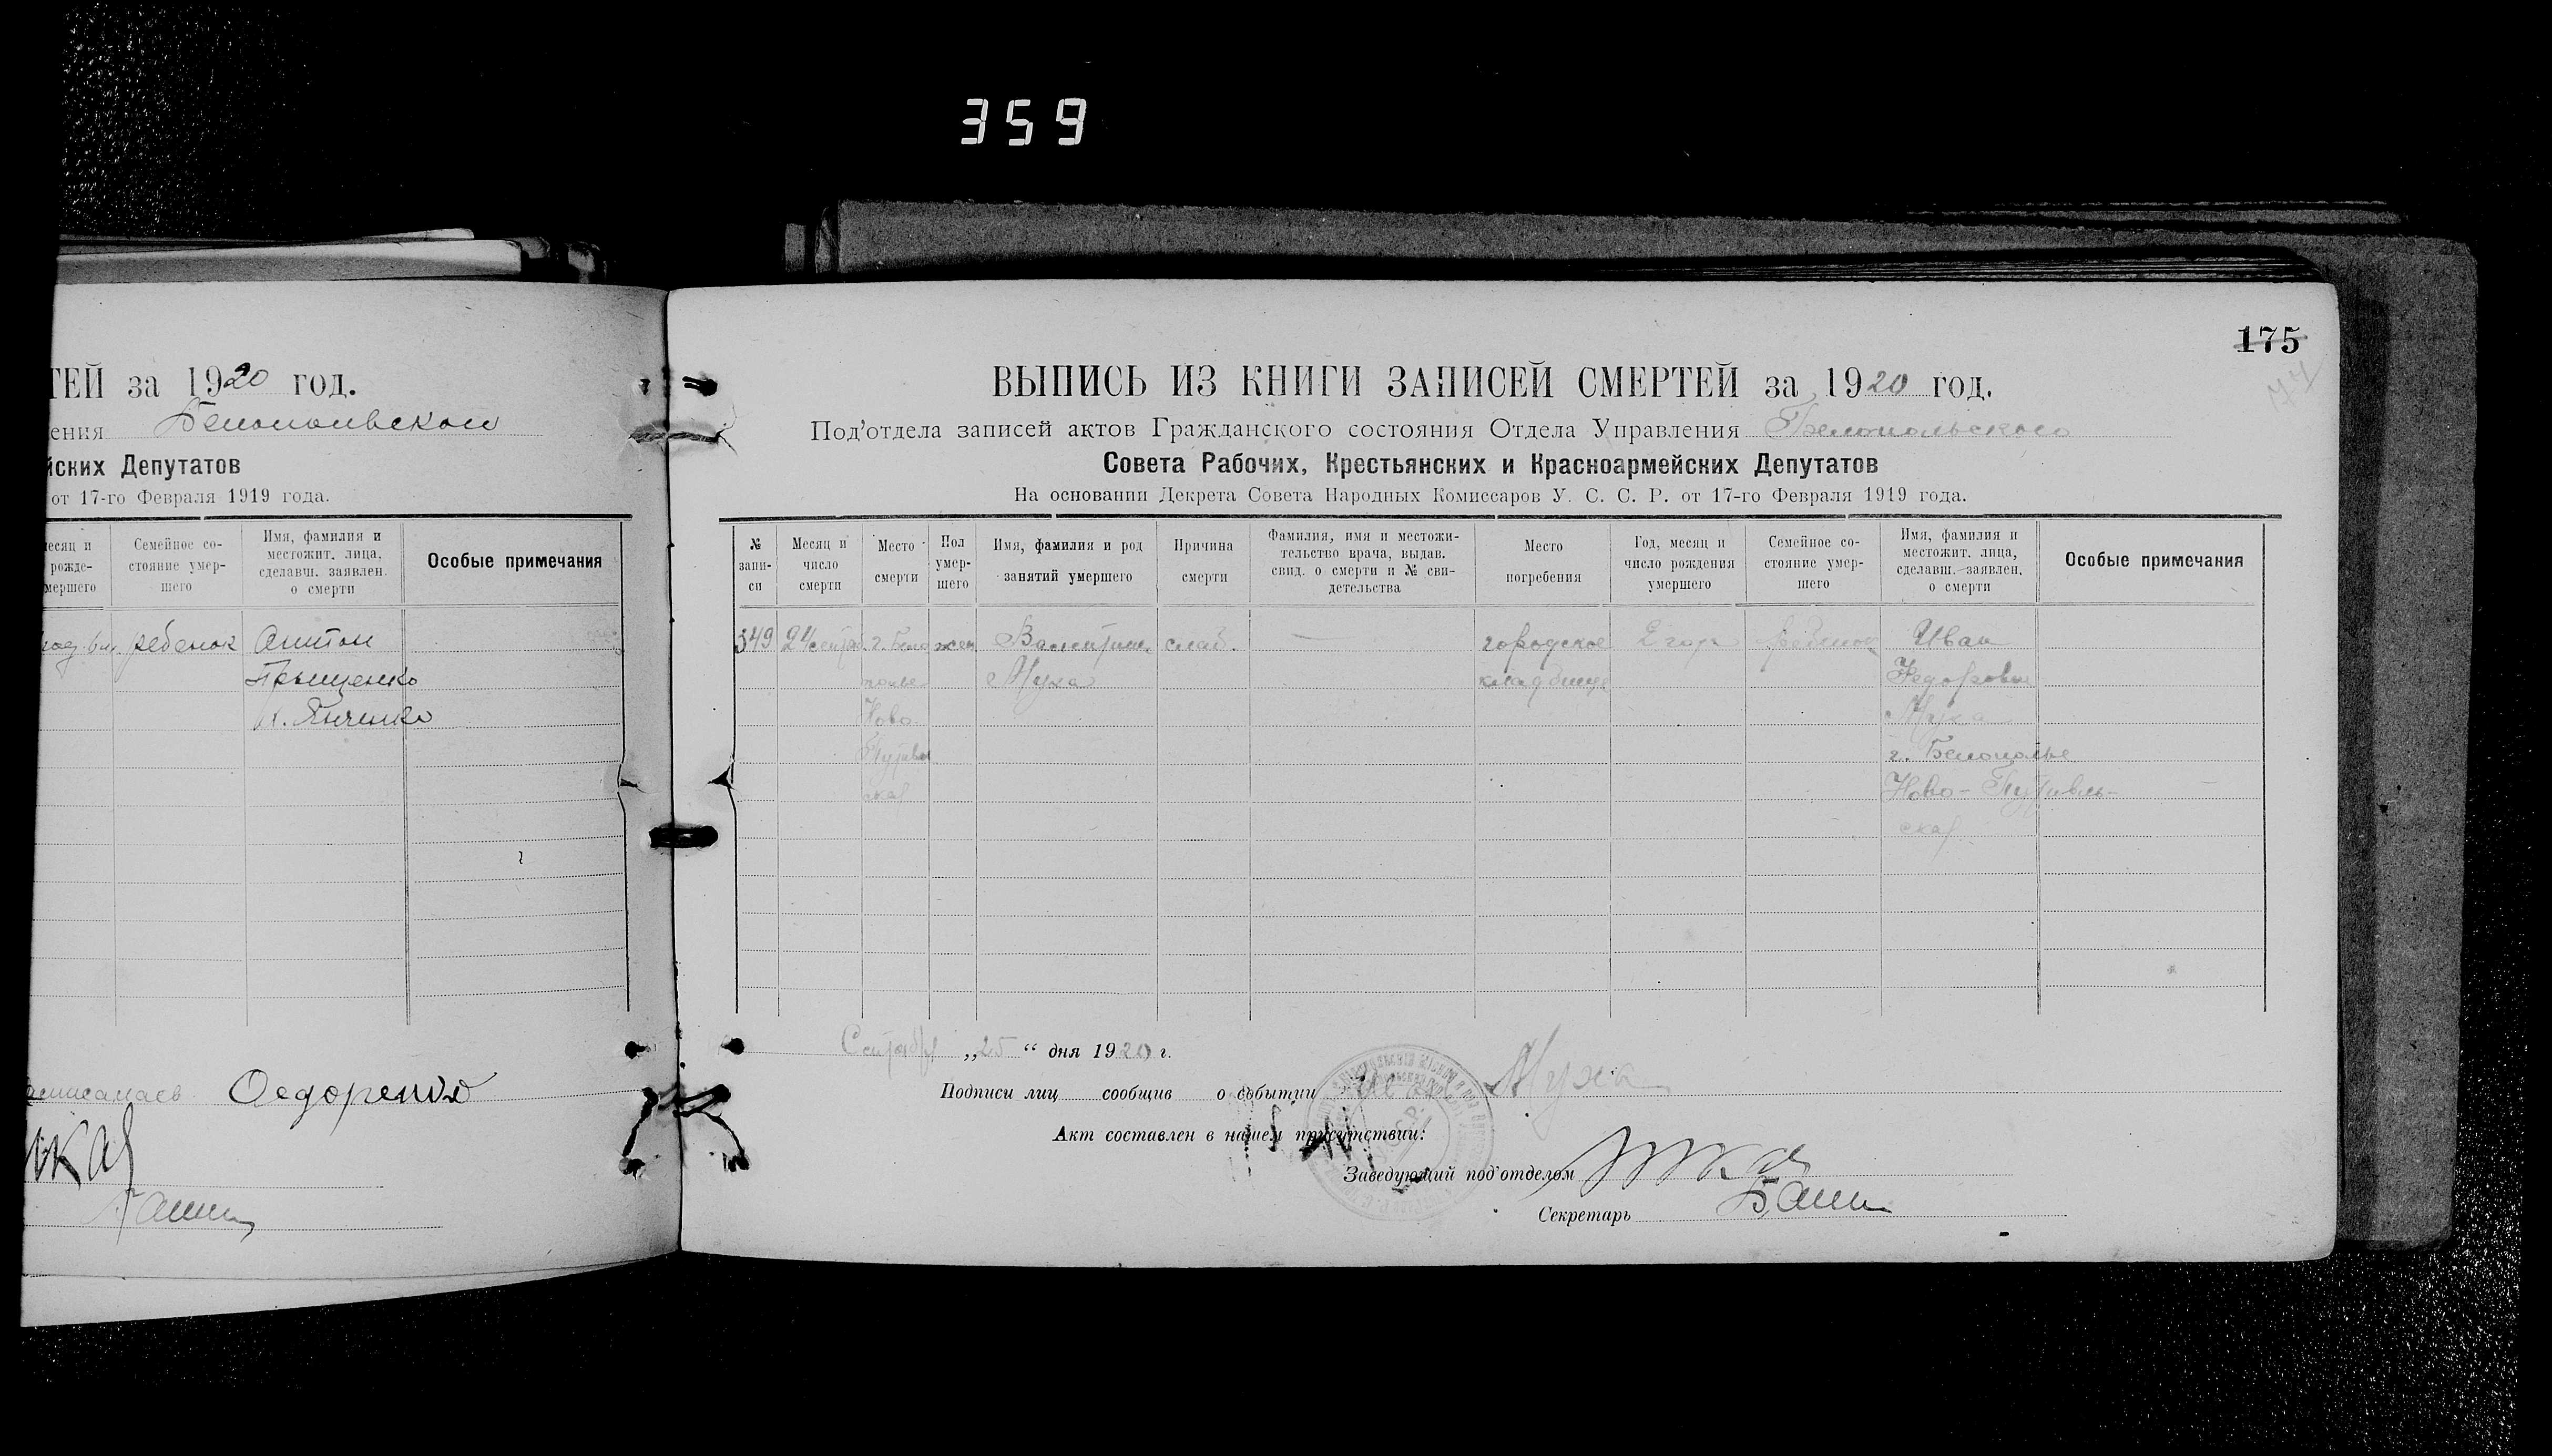 359
ТЕЙ за 1920 год.
ения Белопольскои
йских Депутатов
от 17-го Февраля 1919 года.
есяц и
рожде-
мершего
Семейное со-
стояние умер-
шего
Имя, фамилия и
местожит. лица,
сделавш. заявлен.
о смерти
Особые примечания
ребенок
Антон
Прищенко
Янченко
Федоренко
175
ВЫПИСЬ ИЗ КНИГИ ЗАПИСЕЙ СМЕРТЕЙ за 1920 год.
Под’отдела записей актов Гражданского состояния Отдела Управления Белопольского
Совета Рабочих, Крестьянских и Красноармейских Депутатов
На основании Декрета Совета Народных Комиссаров У. С. С. Р. от 17-го Февраля 1919 года.
№
запи-
си
Месяц и
число
смерти
Место
смерти
Пол
умер-
шего
Имя, фамилия и род
занятий умершего
Причина
смерти
Фамилия, имя и местожи-
тельство врача, выдав.
свид. о смерти и № сви-
детельства
Место
погребения
Год, месяц и
число рождения
умершего
Семейное со-
стояние умер-
шего
Имя, фамилия и
местожит. лица,
сделавш. заявлен.
о смерти
Особые примечания
349
24 сентяб.
г. Бело
полье
Ново-
Путивль
ская
жен
Валентина
Муха
слаб.
городское
кладбище
2 года
ребенок
Иван
Федорович
Муха
г. Белополье
Ново-Путивль-
ская
Сентября „25“ дня 1920 г.
Подписи лиц сообщив о событии Муха
Акт составлен в нашем присутствии:
Заведующий под’отделом
Секретарь